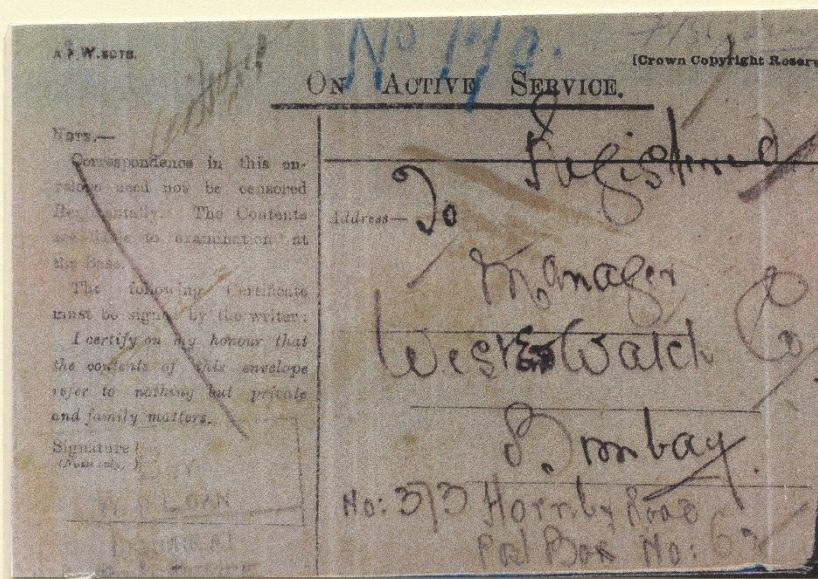 A F W.3078.
No 179.
[Crown Copyright Reserv
ON ACTIVE SERVICE.
NOTE.—
Correspondence in this en-
velope need not be censored
Regimentally. The Contents
are liable to examination at
the Base.
The following Certificate
must be signed by the writer:
I certify on my honour that
the contents of this envelope
refer to nothing but private
and family matters.
Signature
(Name only.)
Registered
Address— To
Manager
West End Watch Co
Bombay.
No: 373 Hornby Road
Post Box No: